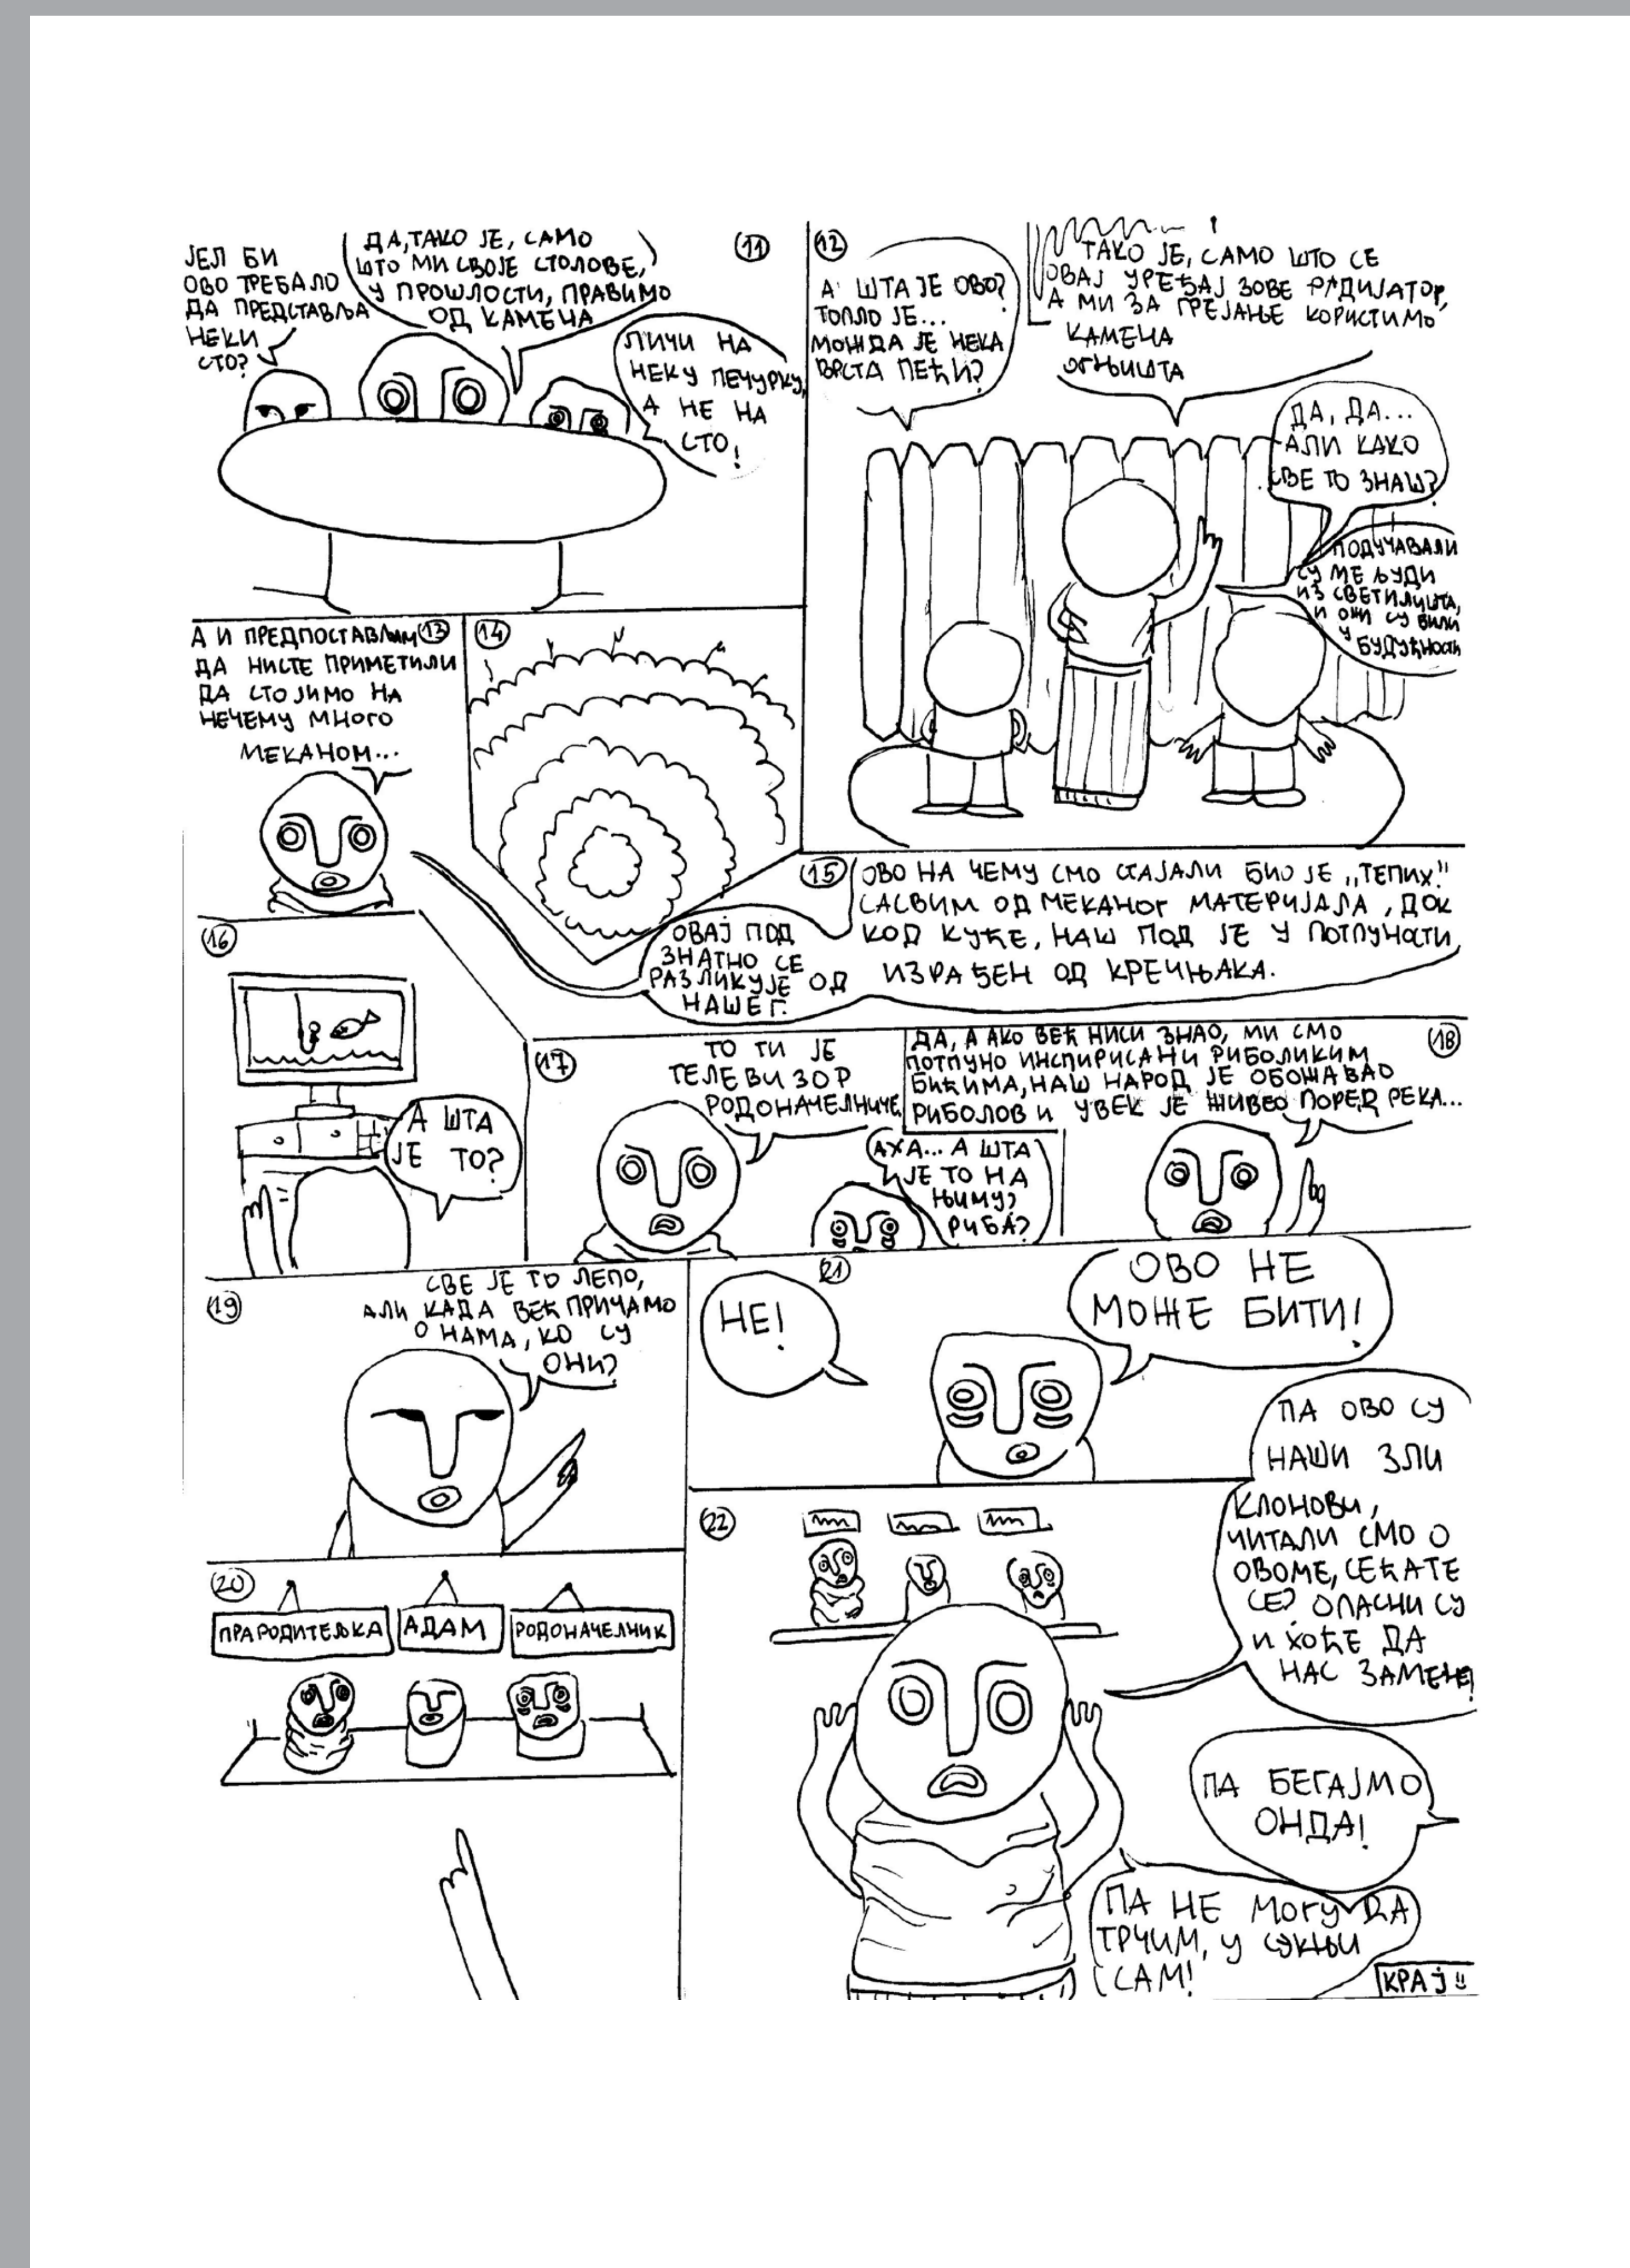 11
ЈЕЛ БИ
ОВО ТРЕБАЛО
ДА ПРЕДСТАВЉА
НЕКИ
СТО?
ДА, ТАКО ЈЕ, САМО
ШТО МИ СВОЈЕ СТОЛОВЕ,
У ПРОШЛОСТИ, ПРАВИМО
ОД КАМЕНА
ЛИЧИ НА
НЕКУ ПЕЧУРКУ,
А НЕ НА
СТО!
12
А ШТА ЈЕ ОВО?
ТОПЛО ЈЕ...
МОЖДА ЈЕ НЕКА
ВРСТА ПЕЋИ?
ТАКО ЈЕ, САМО ШТО СЕ
ОВАЈ УРЕЂАЈ ЗОВЕ РАДИЈАТОР,
А МИ ЗА ГРЕЈАЊЕ КОРИСТИМО
КАМЕНА
ОГЊИШТА
ДА, ДА...
АЛИ КАКО
СВЕ ТО ЗНАШ?
ПОДУЧАВАЛИ
СУ МЕ ЉУДИ
ИЗ СВЕТИЛИШТА,
И ОНИ СУ БИЛИ
У
БУДУЋНОСТИ
13
А И ПРЕДПОСТАВЉАМ
ДА НИСТЕ ПРИМЕТИЛИ
ДА СТОЈИМО НА
НЕЧЕМУ МНОГО
МЕКАНОМ...
14
15
ОВАЈ ПОД
ЗНАТНО СЕ
РАЗЛИКУЈЕ ОД
НАШЕГ.
ОВО НА ЧЕМУ СМО СТАЈАЛИ БИО ЈЕ „ТЕПИХ!"
САСВИМ ОД МЕКАНОГ МАТЕРИЈАЛА, ДОК
КОД КУЋЕ, НАШ ПОД ЈЕ У ПОТПУНОСТИ,
ИЗРАЂЕН ОД КРЕЧЊАКА.
16
А ШТА
ЈЕ ТО?
17
ТО ТИ ЈЕ
ТЕЛЕВИЗОР
РОДОНАЧЕЛНИЧЕ
АХА... А ШТА
ЈЕ ТО НА
ЊИМУ?
РИБА?
18
ДА, А АКО ВЕЋ НИСИ ЗНАО, МИ СМО
ПОТПУНО ИНСПИРИСАНИ РИБОЛИКИМ
БИЋИМА, НАШ НАРОД ЈЕ ОБОЖАВАО
РИБОЛОВ И УВЕК ЈЕ ЖИВЕО ПОРЕД РЕКА...
19
СВЕ ЈЕ ТО ЛЕПО,
АЛИ КАДА ВЕЋ ПРИЧАМО
О НАМА, КО СУ
ОНИ?
20
ПРАРОДИТЕЉКА
АДАМ
РОДОНАЧЕЛНИК
21
НЕ!
ОВО НЕ
МОЖЕ БИТИ!
22
ПА ОВО СУ
НАШИ ЗЛИ
КЛОНОВИ,
ЧИТАЛИ СМО О
ОВОМЕ, СЕЋАТЕ
СЕ? ОПАСНИ СУ
И ХОЋЕ ДА
НАС ЗАМЕНЕ!
ПА БЕГАЈМО
ОНДА!
ПА НЕ МОГУ ДА
ТРЧИМ, У СУКЊИ
САМ!
КРАЈ!!